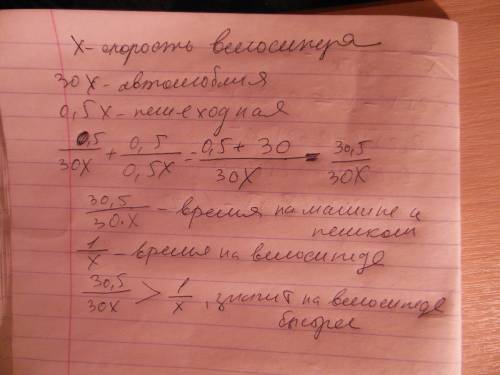 х - скорость велосипеда
30х - автомобиля
0,5х - пешеходная
0,5/30х + 0,5/0,5х = 0,5 + 30/30х = 30,5/30х
30,5/30·х - время на машине и пешком
1/х - время на велосипеде
30,5/30х > 1/х, значит на велосипеде быстрее